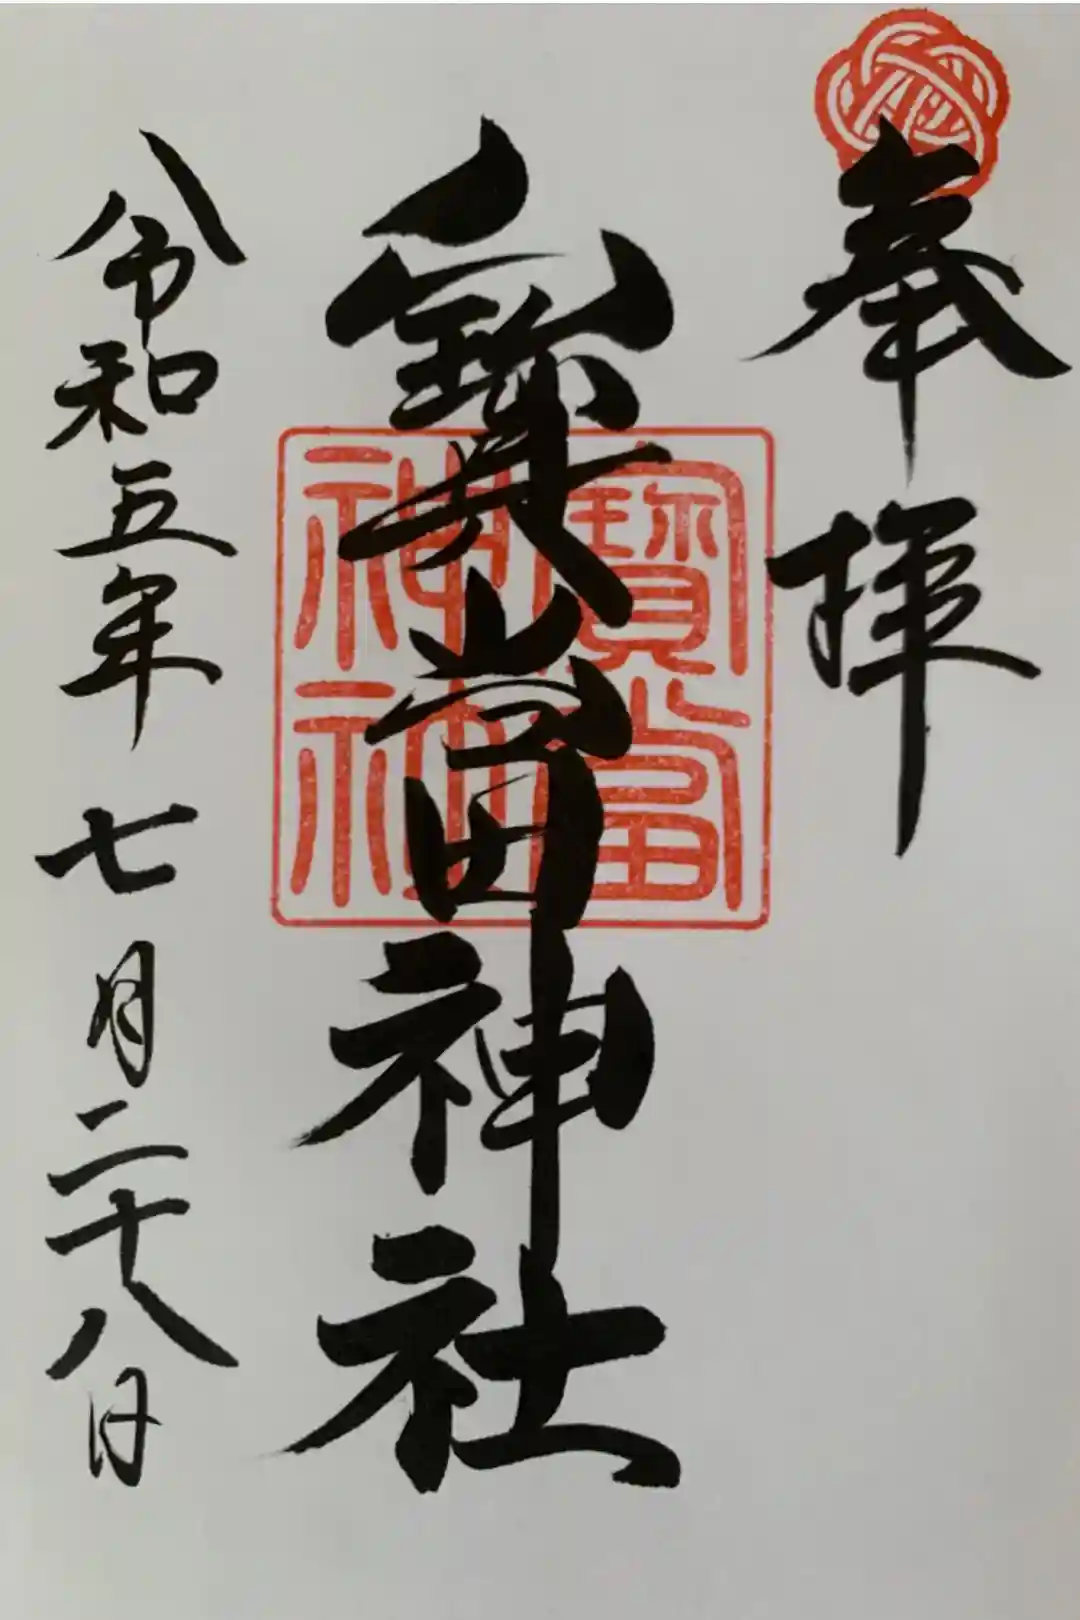 奉拝
寶當神社
寶當
神社
令和五年七月二十八日